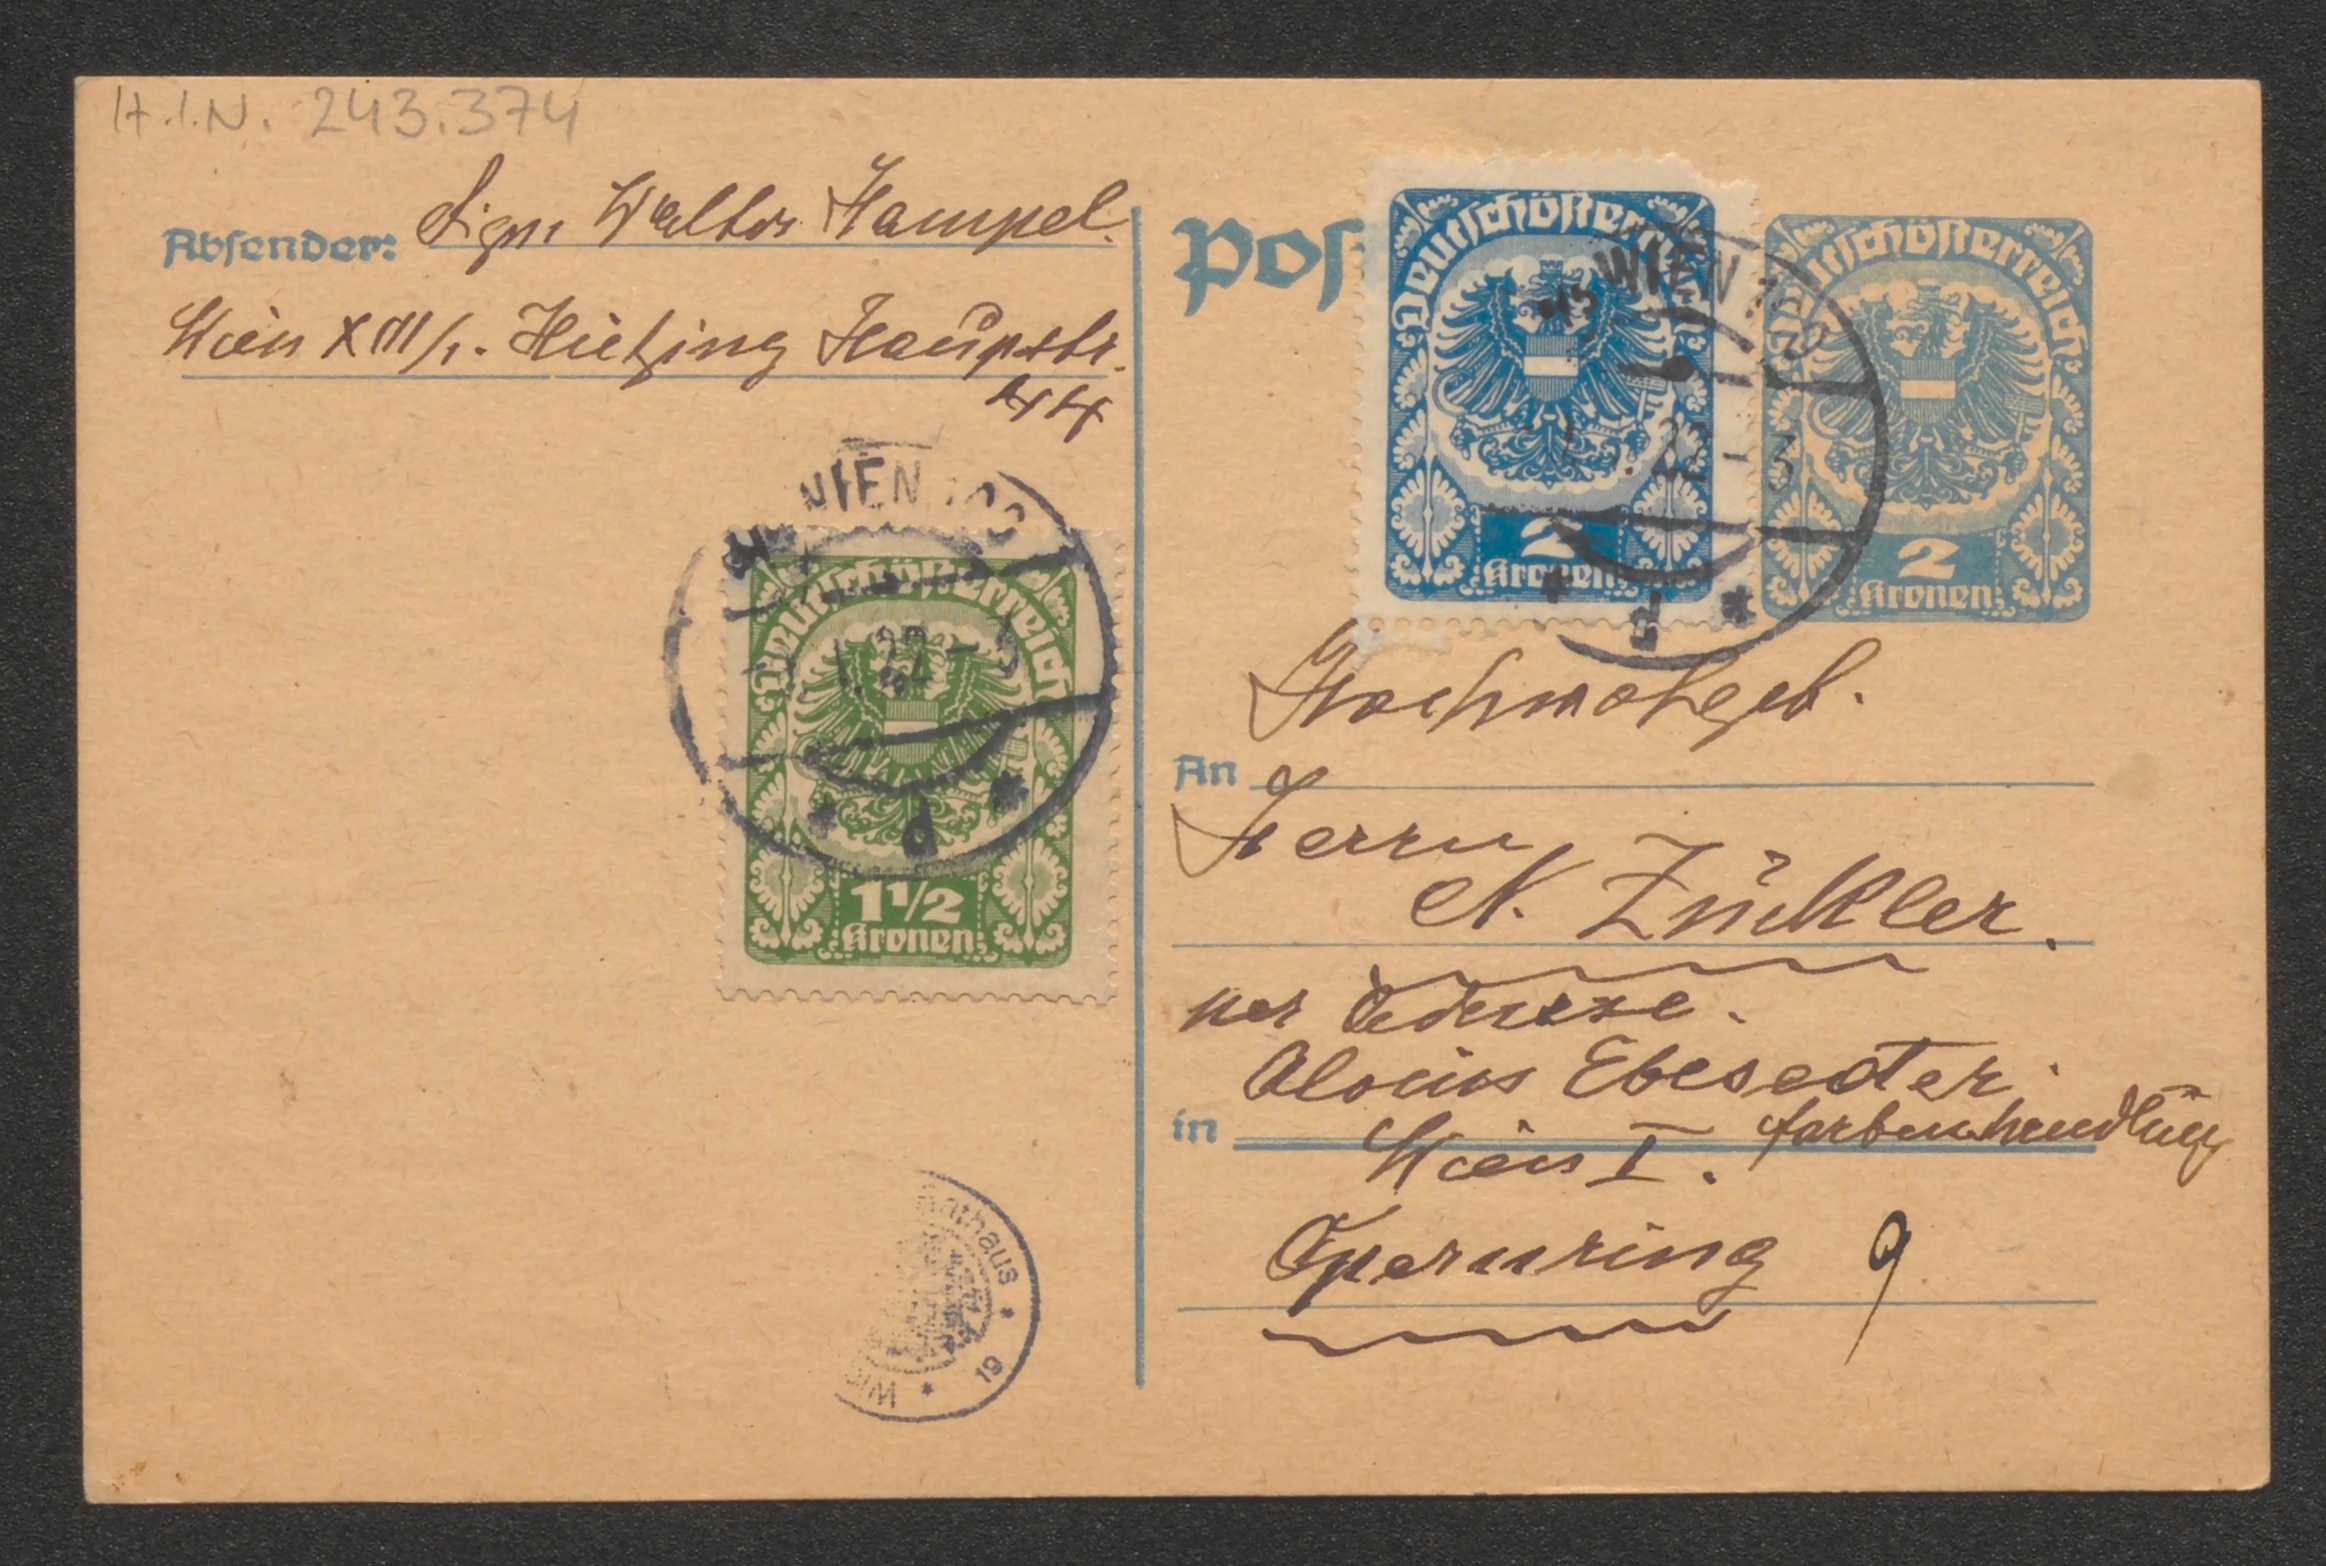 H.I.N. 243.374
Absender: Sigm Walter Hampel.
Wien XIII/1. Hietzing Hauptstr.
44
WIEN
22
Deutschösterreich
1½
Kronen
Rathaus
19
Post
Deutschösterreich
2
Kronen
Deutschösterreich
2
Kronen
WIEN
22 - 3
Hochwohlgeb.
An
Herrn
N. Zückler.
per Adresse.
Alois Ebeseder.
in
Wien I. Farbenhandlung
Opernring 9